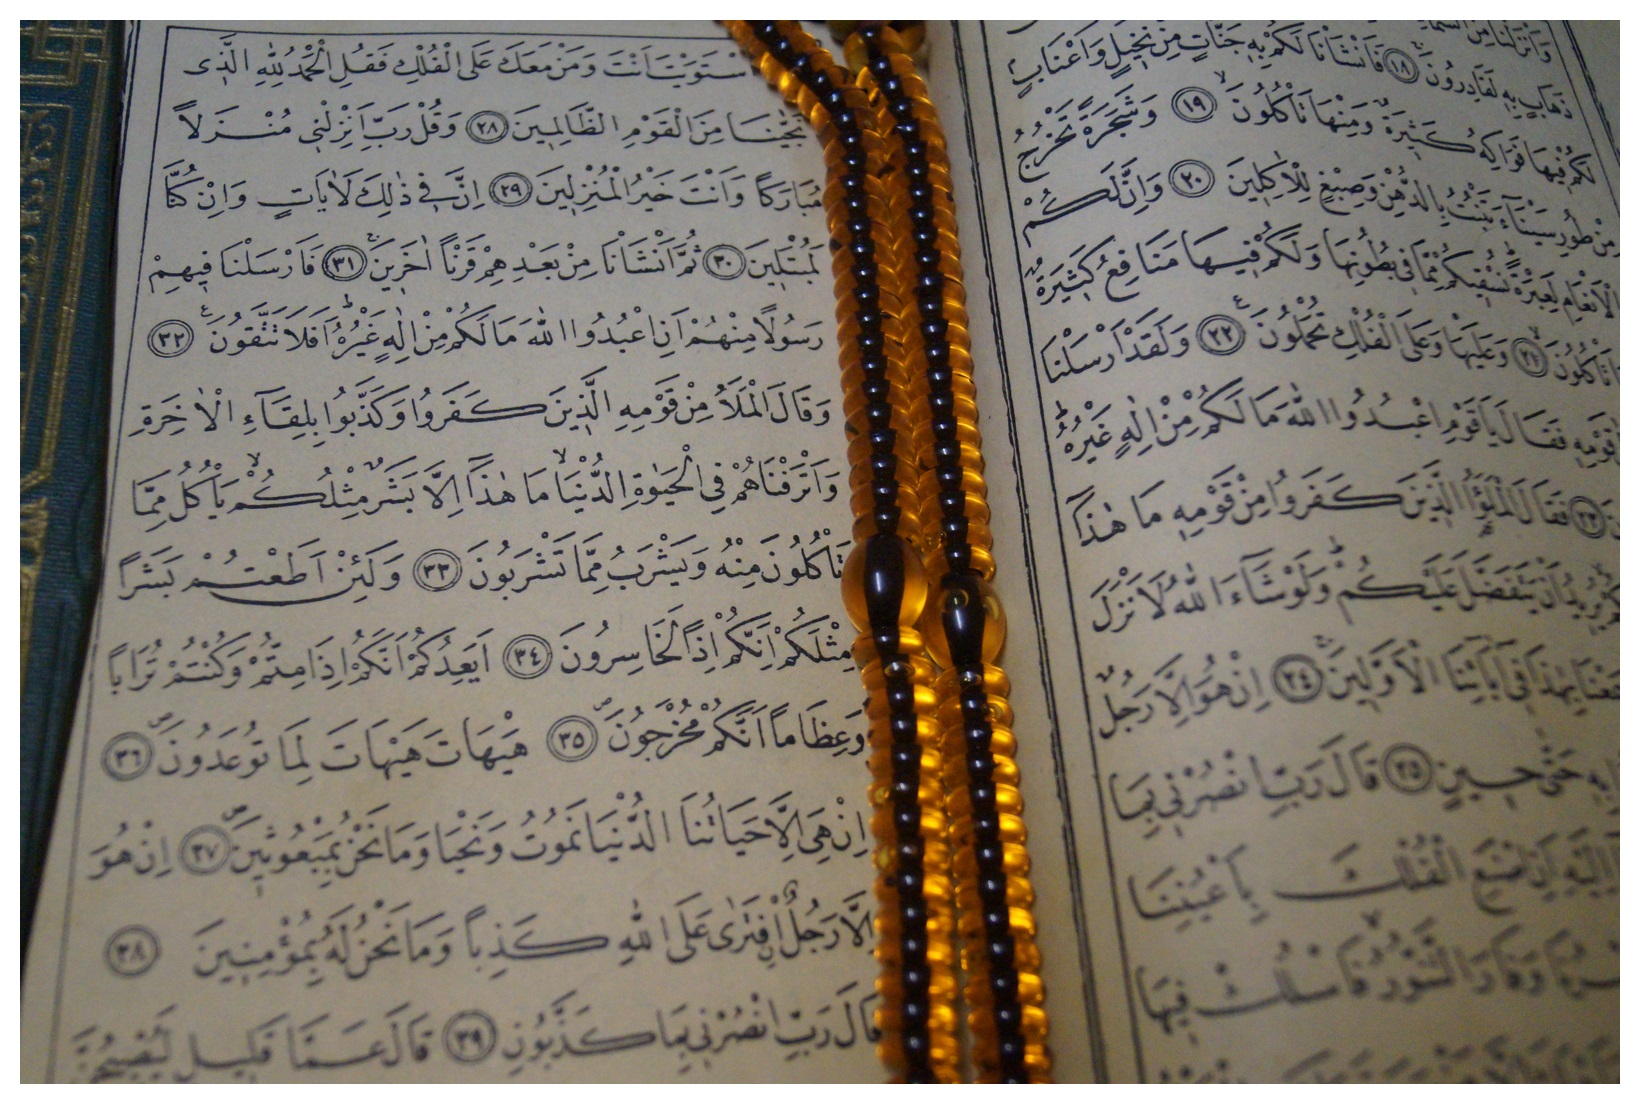 وَاَنْزَلْنَا مِنَ السَّمَٓاءِ
ذَهَابٍ بِهٖ لَقَادِرُونَ ١٨ فَاَنْشَاْنَا لَكُمْ بِهٖ جَنَّاتٍ مِنْ نَخٖيلٍ وَاَعْنَابٍ
لَكُمْ فٖيهَا فَوَاكِهُ كَثٖيرَةٌ وَمِنْهَا تَاْكُلُونَ ١٩ وَشَجَرَةً تَخْرُجُ
مِنْ طُورِ سَيْنَٓاءَ تَنْبُتُ بِالدُّهْنِ وَصِبْغٍ لِلْاٰكِلٖينَ ٢٠ وَاِنَّ لَكُمْ
الْاَنْعَامِ لَعِبْرَةً نُسْقٖيكُمْ مِمَّا فٖى بُطُونِهَا وَلَكُمْ فٖيهَا مَنَافِعُ كَثٖيرَةٌ
تَاْكُلُونَ ٢١ وَعَلَيْهَا وَعَلَى الْفُلْكِ تُحْمَلُونَ ٢٢ وَلَقَدْ اَرْسَلْنَا
قَوْمِهٖ فَقَالَ يَا قَوْمِ اعْبُدُوا اللّٰهَ مَا لَكُمْ مِنْ اِلٰهٍ غَيْرُهُ
٢٣ فَقَالَ الْمَلَؤُا الَّذٖينَ كَفَرُوا مِنْ قَوْمِهٖ مَا هٰذَٓا
يُرٖيدُ اَنْ يَتَفَضَّلَ عَلَيْكُمْ وَلَوْ شَٓاءَ اللّٰهُ لَاَنْزَلَ
سَمِعْنَا بِهٰذَا فٖٓى اٰبَٓائِنَا الْاَوَّلٖينَ ٢٤ اِنْ هُوَ اِلَّا رَجُلٌ
بِهٖ حَتّٰى حٖينٍ ٢٥ قَالَ رَبِّ انْصُرْنٖى بِمَا
اِلَيْهِ اَنِ اصْنَعِ الْفُلْكَ بِاَعْيُنِنَا
وَفَارَ التَّنُّورُ فَاسْلُكْ فٖيهَا
اسْتَوَيْتَ اَنْتَ وَمَنْ مَعَكَ عَلَى الْفُلْكِ فَقُلِ الْحَمْدُ لِلّٰهِ الَّذٖى
نَجّٰينَا مِنَ الْقَوْمِ الظَّالِمٖينَ ٢٨ وَقُلْ رَبِّ اَنْزِلْنٖى مُنْزَلًا
مُبَارَكًا وَاَنْتَ خَيْرُ الْمُنْزِلٖينَ ٢٩ اِنَّ فٖى ذٰلِكَ لَاٰيَاتٍ وَاِنْ كُنَّا
لَمُبْتَلٖينَ ٣٠ ثُمَّ اَنْشَاْنَا مِنْ بَعْدِهِمْ قَرْنًا اٰخَرٖينَ ٣١ فَاَرْسَلْنَا فٖيهِمْ
رَسُولًا مِنْهُمْ اَنِ اعْبُدُوا اللّٰهَ مَا لَكُمْ مِنْ اِلٰهٍ غَيْرُهُ اَفَلَا تَتَّقُونَ ٣٢
وَقَالَ الْمَلَاُ مِنْ قَوْمِهِ الَّذٖينَ كَفَرُوا وَكَذَّبُوا بِلِقَٓاءِ الْاٰخِرَةِ
وَاَتْرَفْنَاهُمْ فِى الْحَيٰوةِ الدُّنْيَا مَا هٰذَٓا اِلَّا بَشَرٌ مِثْلُكُمْ يَاْكُلُ مِمَّا
تَاْكُلُونَ مِنْهُ وَيَشْرَبُ مِمَّا تَشْرَبُونَ ٣٣ وَلَئِنْ اَطَعْتُمْ بَشَرًا
مِثْلَكُمْ اِنَّكُمْ اِذًا لَخَاسِرُونَ ٣٤ اَيَعِدُكُمْ اَنَّكُمْ اِذَا مِتُّمْ وَكُنْتُمْ تُرَابًا
وَعِظَامًا اَنَّكُمْ مُخْرَجُونَ ٣٥ هَيْهَاتَ هَيْهَاتَ لِمَا تُوعَدُونَ ٣٦
اِنْ هِىَ اِلَّا حَيَاتُنَا الدُّنْيَا نَمُوتُ وَنَحْيَا وَمَا نَحْنُ بِمَبْعُوثٖينَ ٣٧ اِنْ هُوَ
اِلَّا رَجُلٌ افْتَرٰى عَلَى اللّٰهِ كَذِبًا وَمَا نَحْنُ لَهُ بِمُؤْمِنٖينَ ٣٨
قَالَ رَبِّ انْصُرْنٖى بِمَا كَذَّبُونِ ٣٩ قَالَ عَمَّا قَلٖيلٍ لَيُصْبِحُنَّ